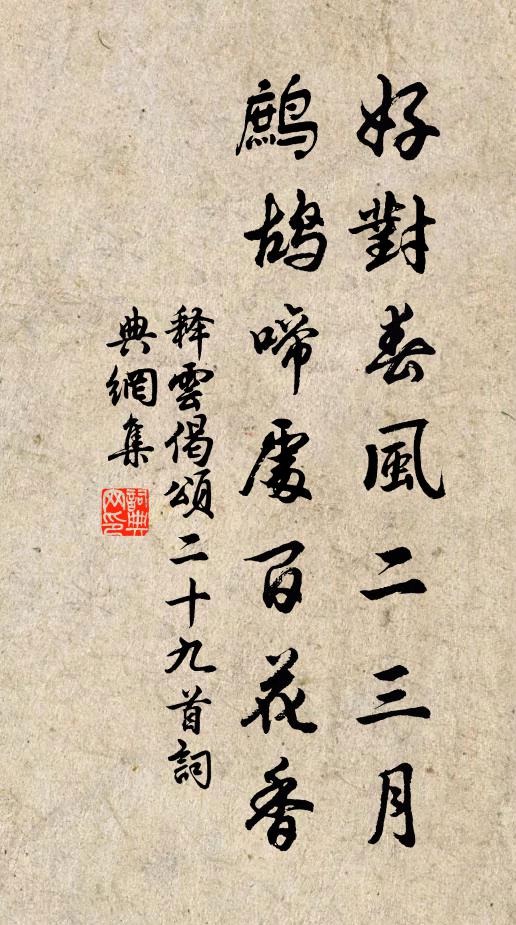 好對春風二三月
鷓鴣啼處百花香
释雲偈頌二十九首詞
典網集
詞典
网印